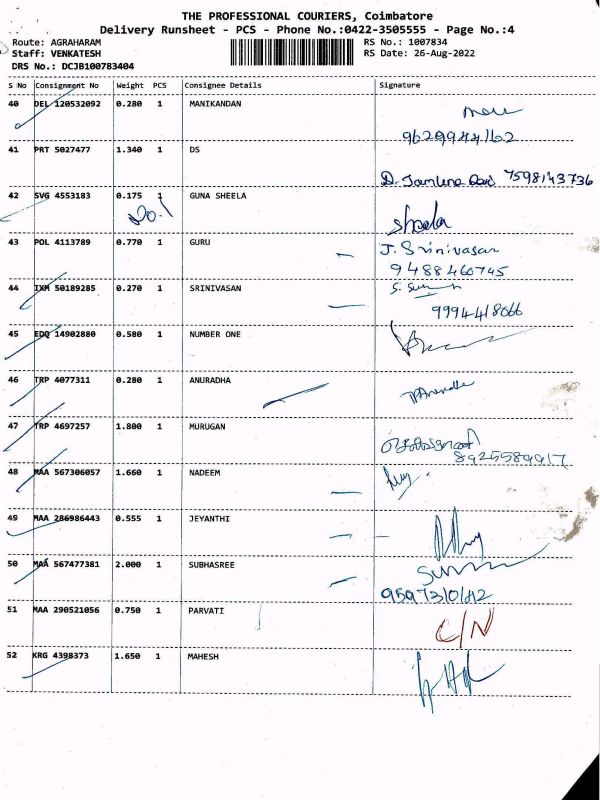 THE PROFESSIONAL COURIERS, Coimbatore
Delivery Runsheet - PCS - Phone No.:0422-3505555 - Page No.:4
Route: AGRAHARAM RS No.: 1007834
Staff: VENKATESH RS Date: 26-Aug-2022
DRS No.: DCJB100783404
S No Consignment No Weight PCS Consignee Details Signature
40 DEL 120532092 0.280 1 MANIKANDAN
9629944162
41 PRT 5027477 1.340 1 DS
7598143736
42 SVG 4553183 0.175 1 GUNA SHEELA
Sheela
43 POL 4113789 0.770 1 GURU J. Srinivasan
9488460745
44 IXM 50189285 0.270 1 SRINIVASAN
9994418066
45 EDQ 14902880 0.580 1 NUMBER ONE
46 TRP 4077311 0.280 1 ANURADHA
47 TRP 4697257 1.800 1 MURUGAN
8925589917
48 MAA 567306057 1.660 1 NADEEM
49 MAA 286986443 0.555 1 JEYANTHI
50 MAA 567477381 2.000 1 SUBHASREE
51 MAA 290521056 0.750 1 PARVATI C/N
52 KRG 4398373 1.650 1 MAHESH